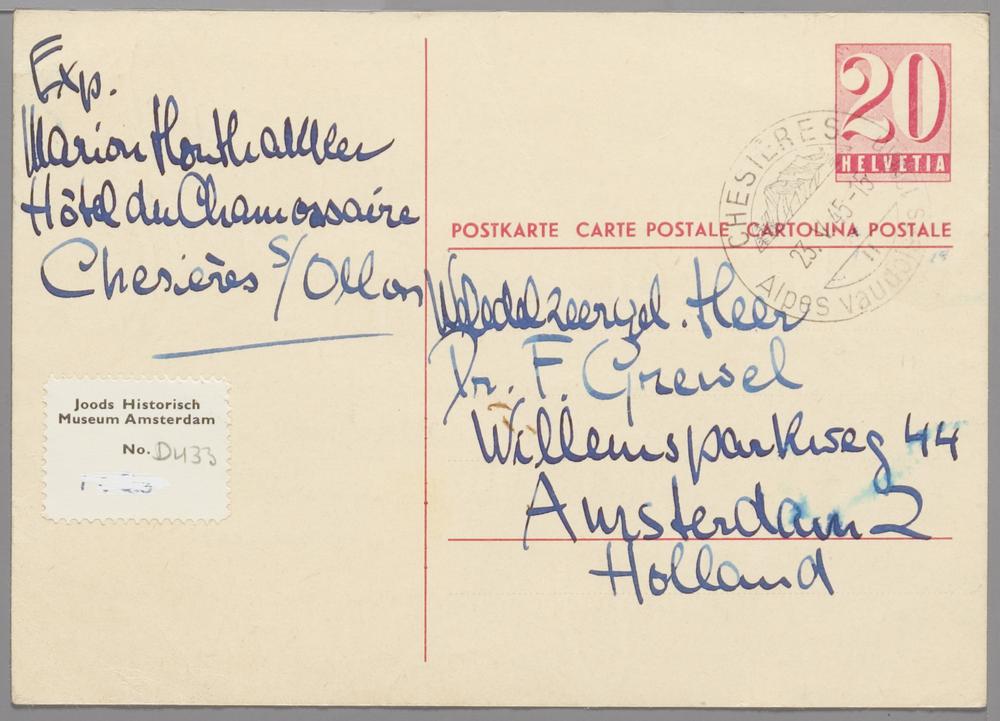 Exp.
Marion
Hôtel du Chamossaire
Chesières s/Ollon
Joods Historisch
Museum Amsterdam
No. D433
20
HELVETIA
CHESIÈRES
Alpes vaudoises
POSTKARTE CARTE POSTALE CARTOLINA POSTALE
Weledelzeergel. Heer
Dr. F. Grewel
Willemsparkweg 44
Amsterdam 2
Holland